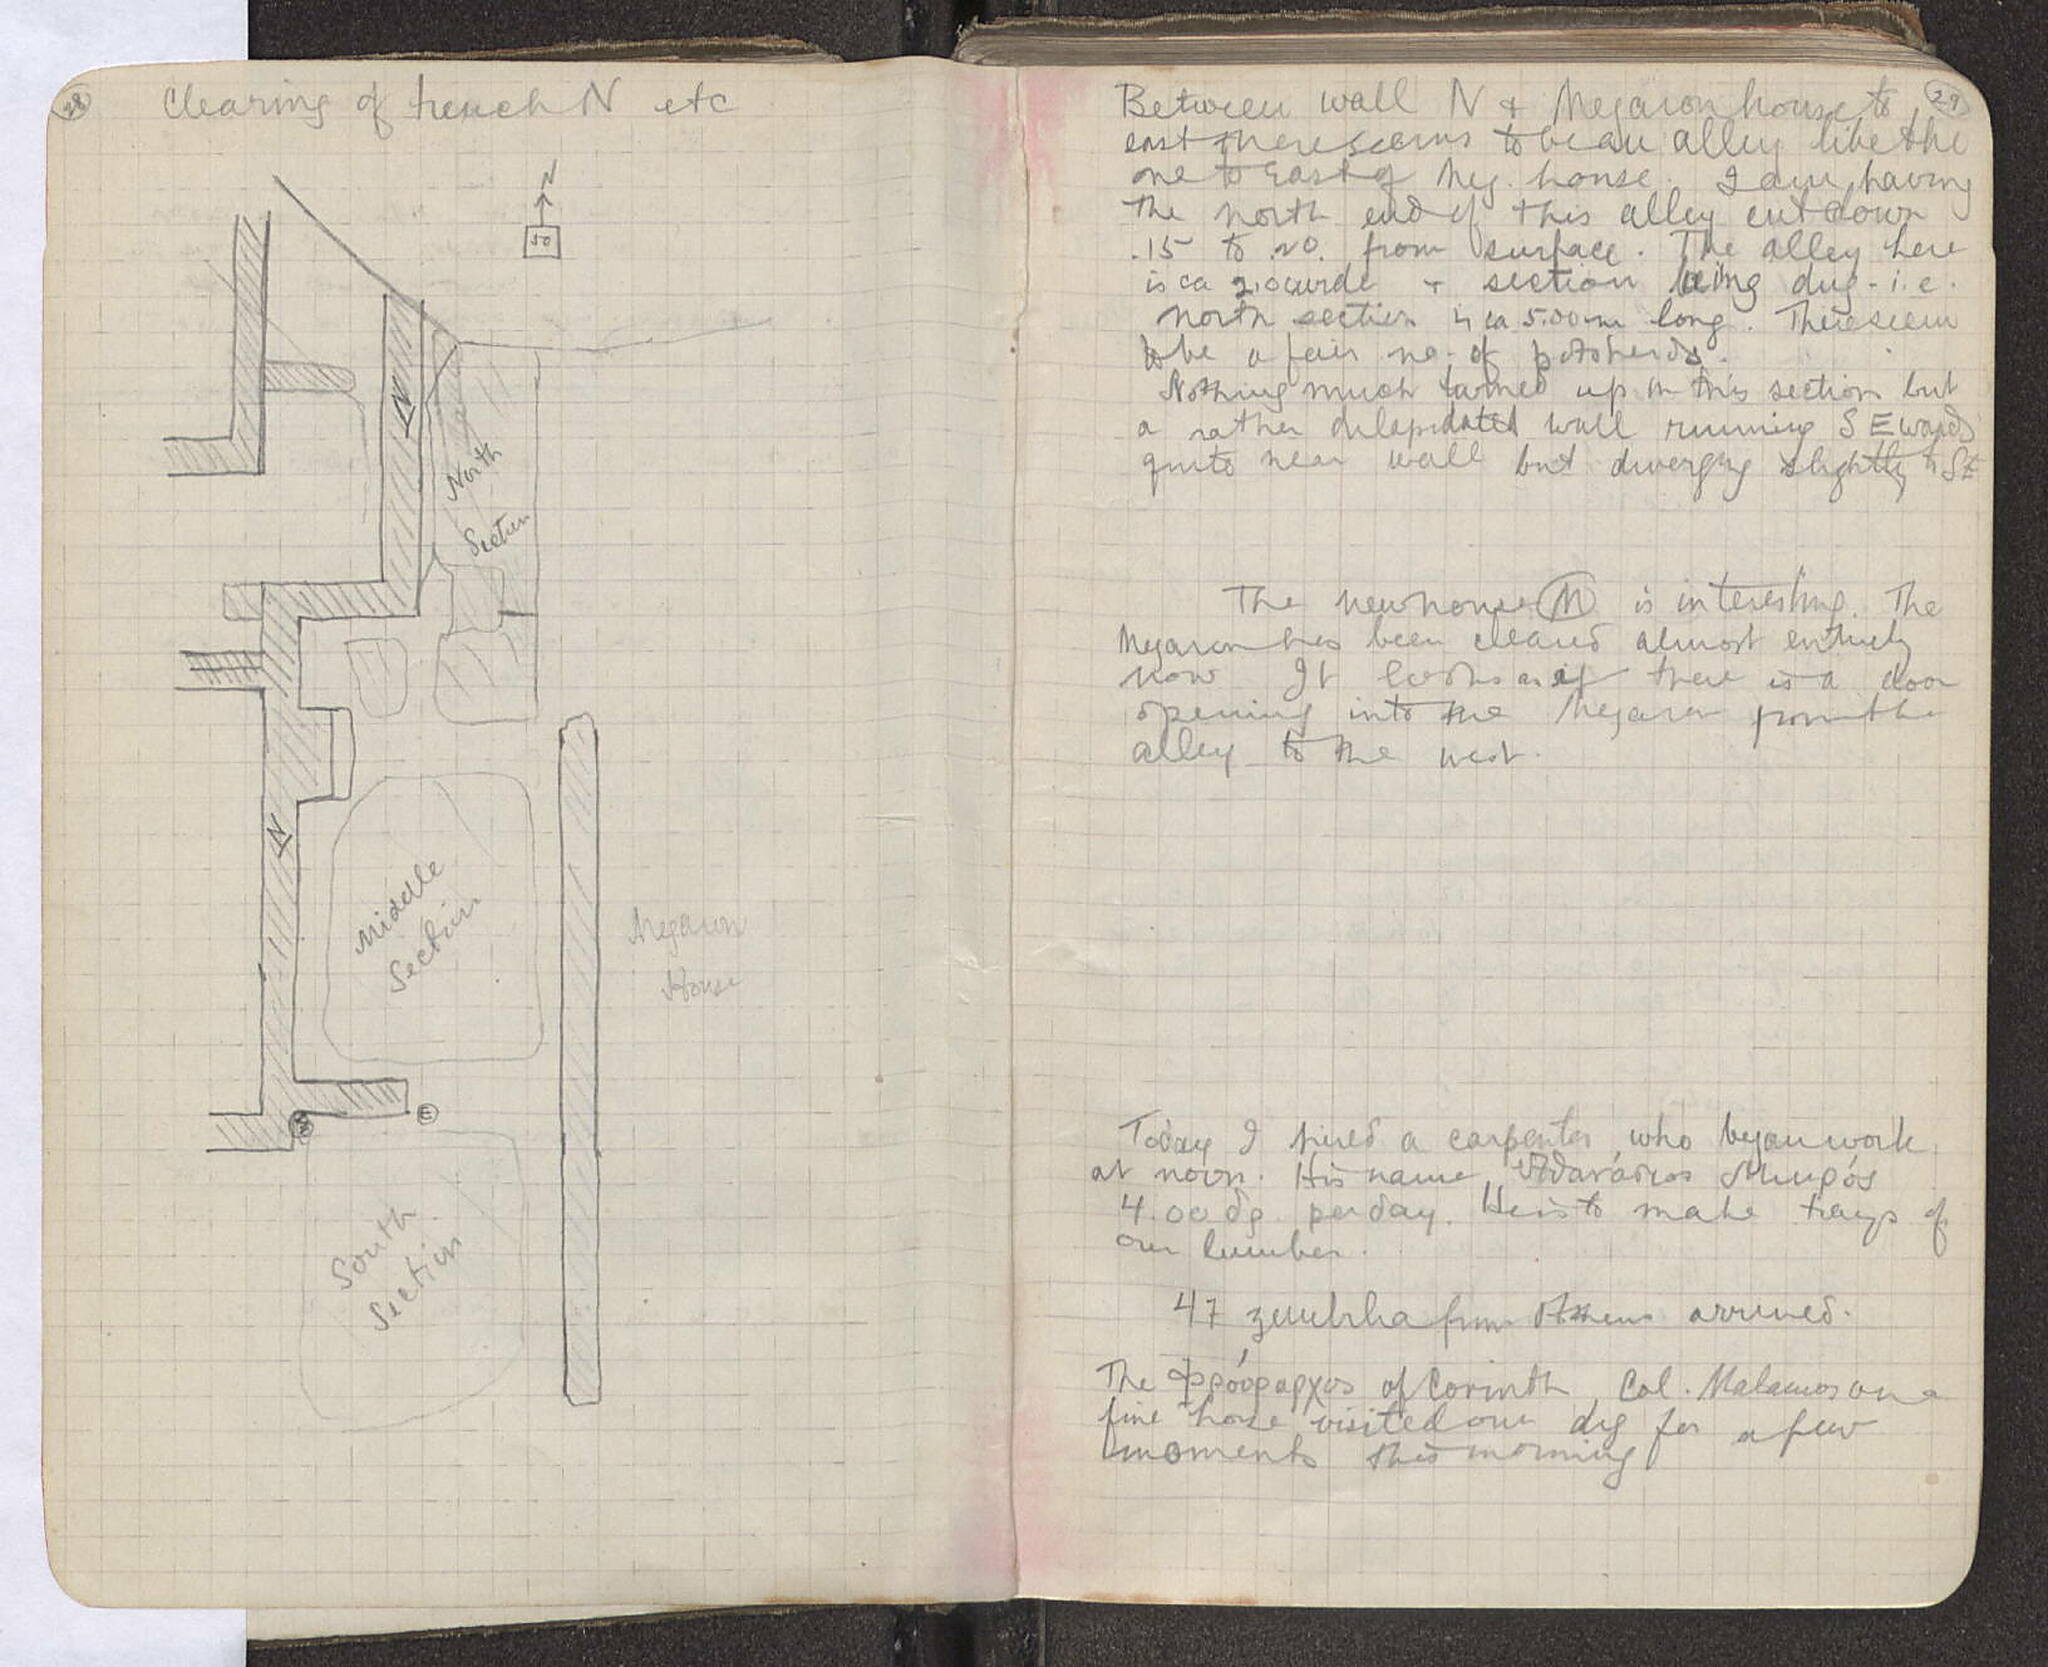 28
Clearing of trench N etc
N
50
N
North
Section
N
Middle
Section
Megaron
House
W
E
South
Section
29
Between wall N + Megaron house to
east there seems to be an alley like the
one to East of Meg. house. I am having
the north end of this alley cut down
.15 to .20. from surface. The alley here
is ca 2.0 wide + section being dug - i.e.
North section is ca 5.00m long. There seem
to be a fair no. of potsherds.
Nothing much turned up in this section but
a rather delapidated wall running S E wards
quite near wall but diverging slightly to SE
The new house M is interesting. The
Megaron has been cleared almost entirely
now It looks as if there is a door
opening into the Megaron from the
alley to the west.
Today I hired a carpenter, who began work
at noon. His name Ἀθανάσιος
4.00 dg per day. He is to make trays of
our lumber.
47 zembilia from Athens arrived.
The Φρούραρχος of Corinth Col. Malamos on a
fine horse visited our dig for a few
moments this morning